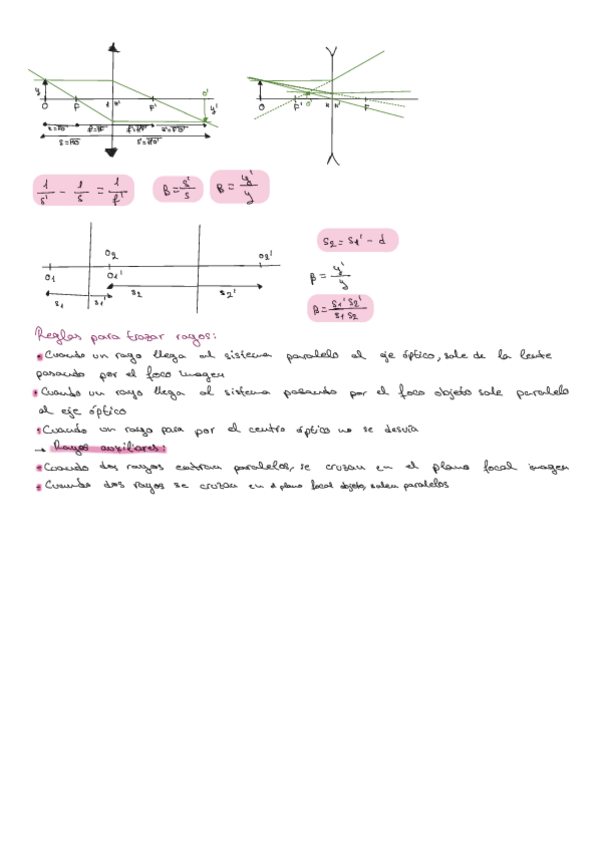 y O F H H' F' O' y'
s=HO f=HF f'=H'F'
s'=H'O'
O F' O' H H' F
1/s' - 1/s = 1/f' β = s'/s β = y'/y
O1 O2 O1' O2'
s1 s1' s2 s2'
s2 = s1' - d
β = y'/y
β = s1' s2' / s1 s2
Reglas para trazar rayos:
Cuando un rayo llega al sistema paralelo al eje óptico, sale de la lente
pasando por el foco imagen
Cuando un rayo llega al sistema pasando por el foco objeto sale paralelo
al eje óptico
Cuando un rayo pasa por el centro óptico no se desvía
→ Rayos auxiliares:
Cuando dos rayos entran paralelos, se cruzan en el plano focal imagen
Cuando dos rayos se cruzan en el plano focal objeto, salen paralelos